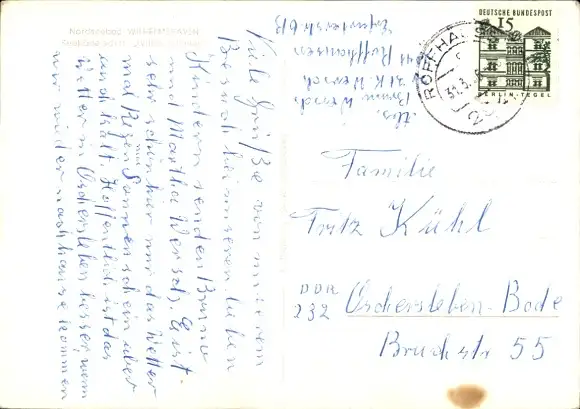 Viele Grüße von unserem
Besuch bei unseren lieben
Kindern senden Bruno
und Martha Wersch. Es ist
sehr schön hier nur das Wetter
mal Regen Sonnenschein aber
auch kalt. Hoffentlich ist das
Wetter in Oschersleben besser, wenn
wir wieder nach hause kommen
Abs.
Bruno Wersch
K. Wersch
Rotthausen
DEUTSCHE BUNDESPOST
15
BERLIN-TEGEL
31.3.
Familie
Fritz Kühl
DDR
232 Oschersleben-Bode
Bruchstr 55